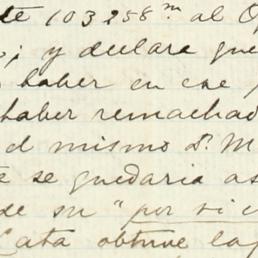 te 103258 m al O
; y declara que
haber en ese
haber remachad
el mismo Dr. M
te se quedaria as
de su "por si
Cata obtuve la